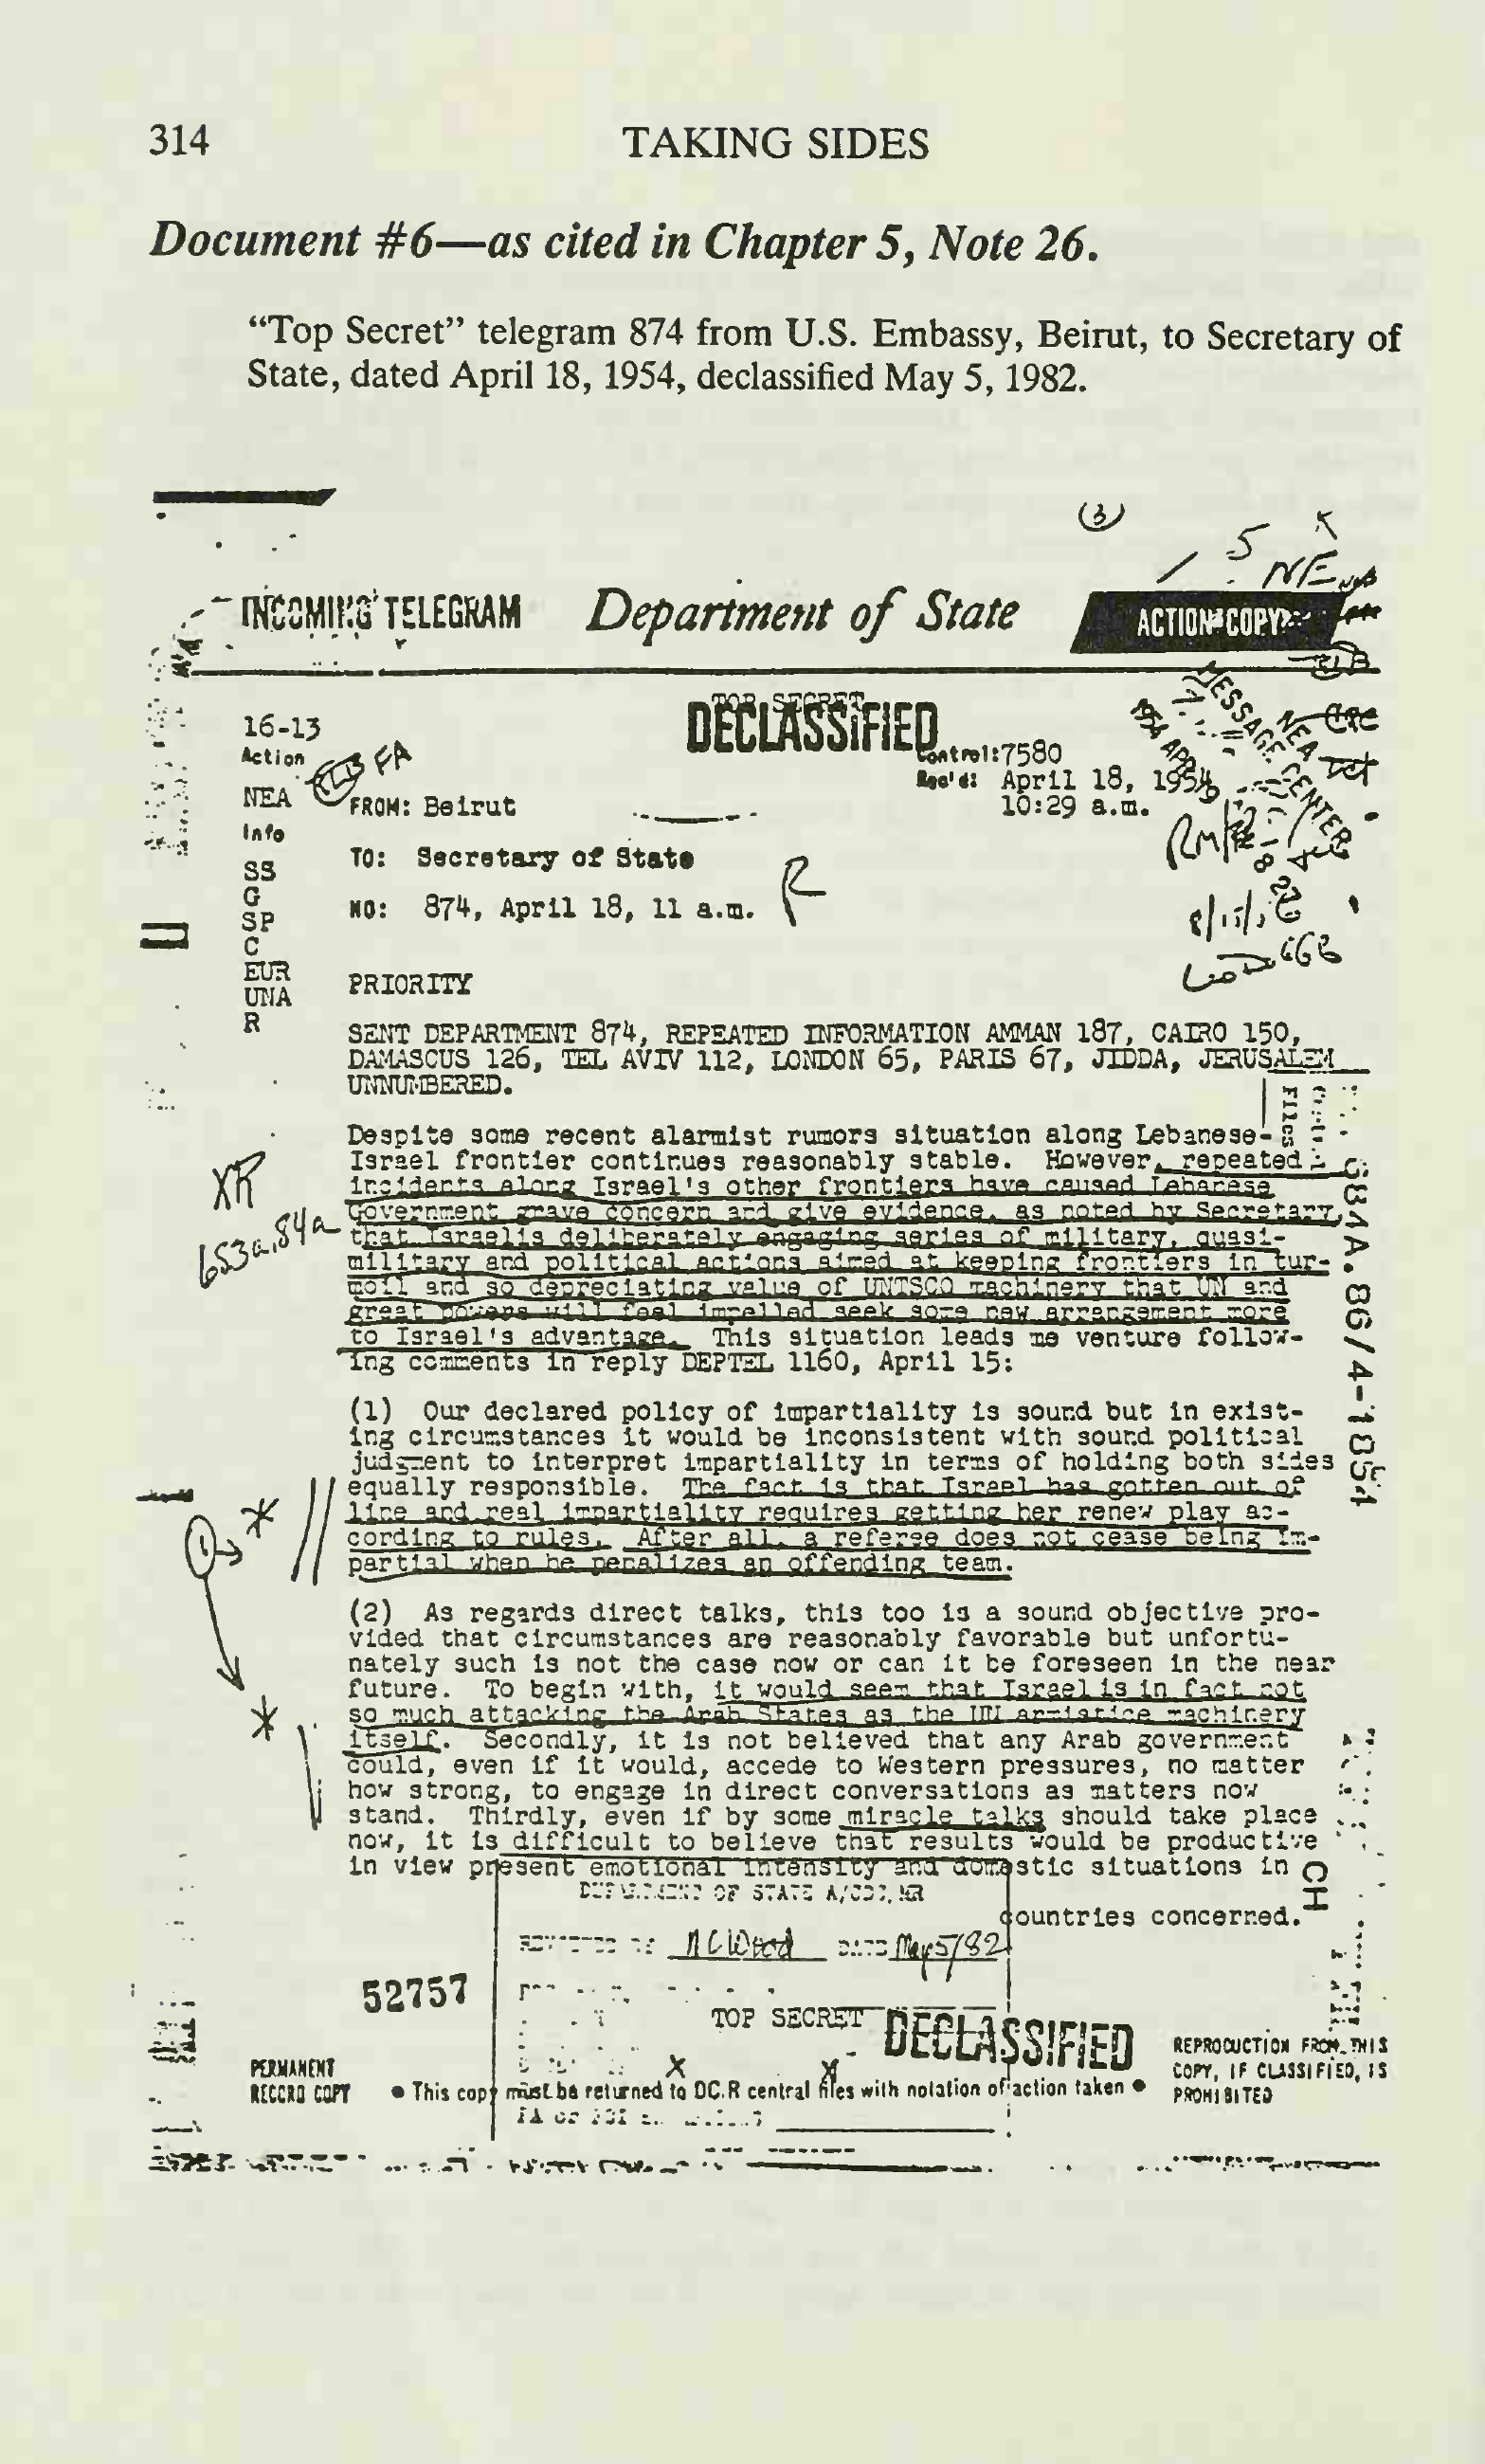 314
TAKING SIDES
Document #6—as cited in Chapter 5, Note 26.
“Top Secret” telegram 874 from U.S. Embassy, Beirut, to Secretary of
State, dated April 18, 1954, declassified May 5, 1982.
(3)
5
NE
INCOMING TELEGRAM
Department of State
ACTION COPY
TOP SECRET
DECLASSIFIED
16-13
Action
FA
NEA
Info
SS
G
SP
C
EUR
UNA
R
Control: 7580
Rec'd: April 18, 1954
10:29 a.m.
MESSAGE CENTER
NEA
1954 APR
FROM: Beirut
TO: Secretary of State
NO: 874, April 18, 11 a.m.
R
PRIORITY
SENT DEPARTMENT 874, REPEATED INFORMATION AMMAN 187, CAIRO 150,
DAMASCUS 126, TEL AVIV 112, LONDON 65, PARIS 67, JIDDA, JERUSALEM
UNNUMBERED.
Files
Despite some recent alarmist rumors situation along Lebanese-
Israel frontier continues reasonably stable. However, repeated
incidents along Israel's other frontiers have caused Lebanese
Government grave concern and give evidence, as noted by Secretary,
that Israelis deliberately engaging series of military, quasi-
military and political actions aimed at keeping frontiers in tur-
moil and so depreciating value of UNTSCO machinery that UN and
great powers will feel impelled seek some new arrangement more
to Israel's advantage. This situation leads me venture follow-
ing comments in reply DEPTEL 1160, April 15:
XR
653a.84a
684A.86/4-1854
(1) Our declared policy of impartiality is sound but in exist-
ing circumstances it would be inconsistent with sound political
judgment to interpret impartiality in terms of holding both sides
equally responsible. The fact is that Israel has gotten out of
line and real impartiality requires getting her renew play ac-
cording to rules. After all, a referee does not cease being im-
partial when he penalizes an offending team.
(2) As regards direct talks, this too is a sound objective pro-
vided that circumstances are reasonably favorable but unfortu-
nately such is not the case now or can it be foreseen in the near
future. To begin with, it would seem that Israel is in fact not
so much attacking the Arab States as the UN armistice machinery
itself. Secondly, it is not believed that any Arab government
could, even if it would, accede to Western pressures, no matter
how strong, to engage in direct conversations as matters now
stand. Thirdly, even if by some miracle talks should take place
now, it is difficult to believe that results would be productive
in view present emotional intensity and domestic situations in
countries concerned.
CH
DEPARTMENT OF STATE A/CDC/MR
REVIEWED BY DATE May 5/82
52757
TOP SECRET
DECLASSIFIED
PERMANENT
RECORD COPY
• This copy must be returned to DC.R central files with notation of action taken •
REPRODUCTION FROM THIS
COPY, IF CLASSIFIED, IS
PROHIBITED